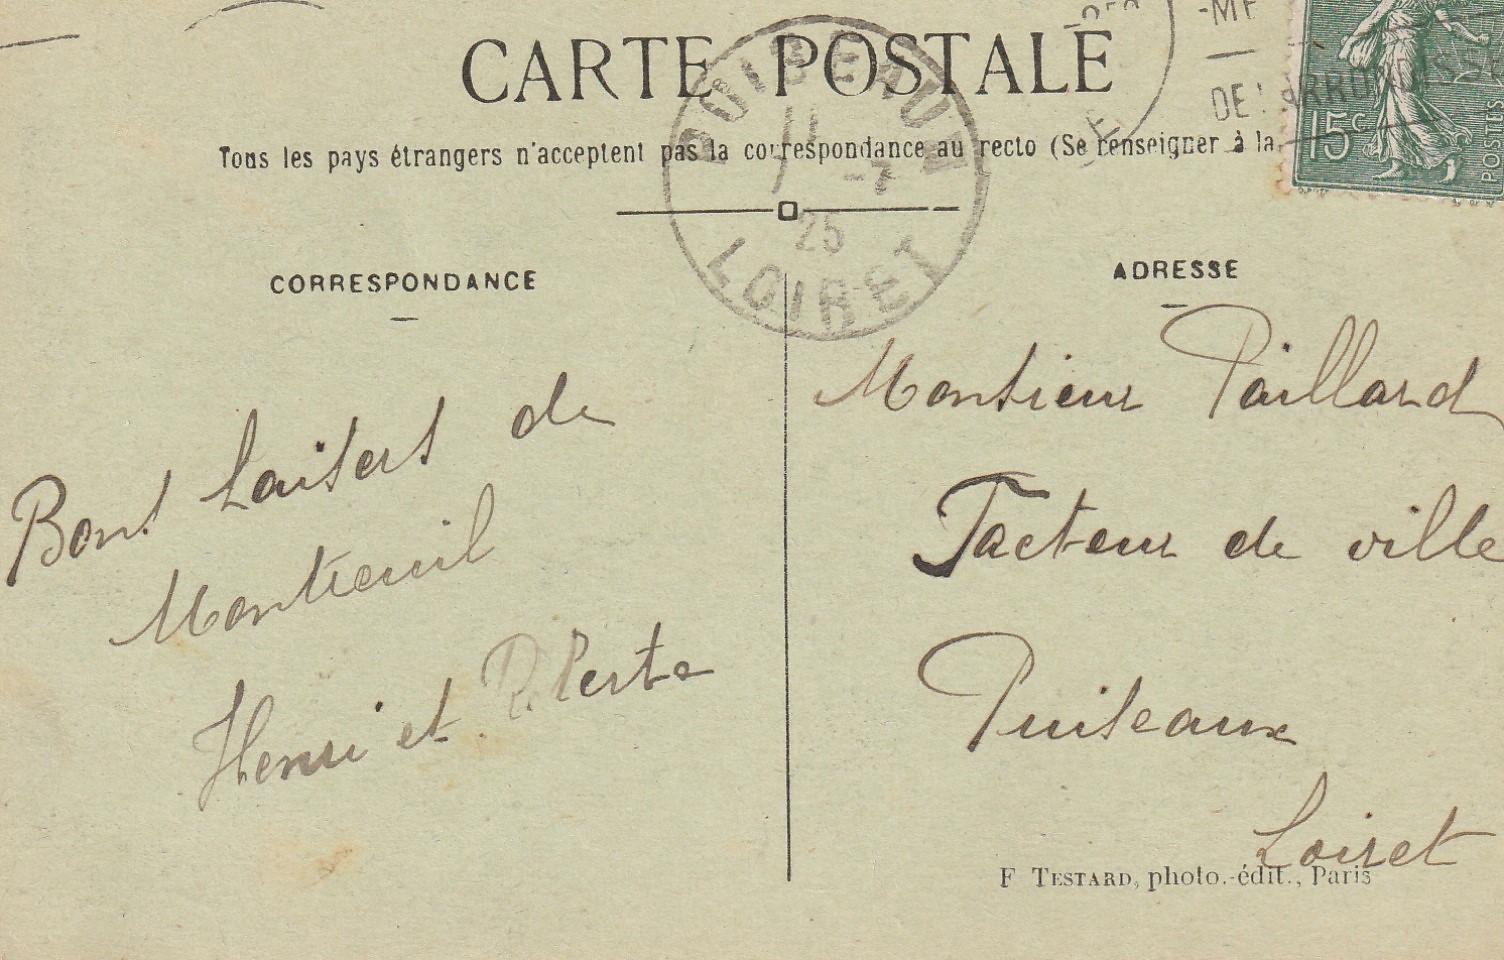 CARTE POSTALE
Tous les pays étrangers n'acceptent pas la correspondance au recto (Se renseigner à la
PUISEAUX
11 -7
25
LOIRET
-MF
DE! ARRONDISS
15c
POSTES
CORRESPONDANCE
ADRESSE
Bons baisers de
Montreuil
Henri et Berte
Monsieur Paillard
Facteur de ville
Puiseaux
Loiret
F TESTARD, photo.-édit., Paris